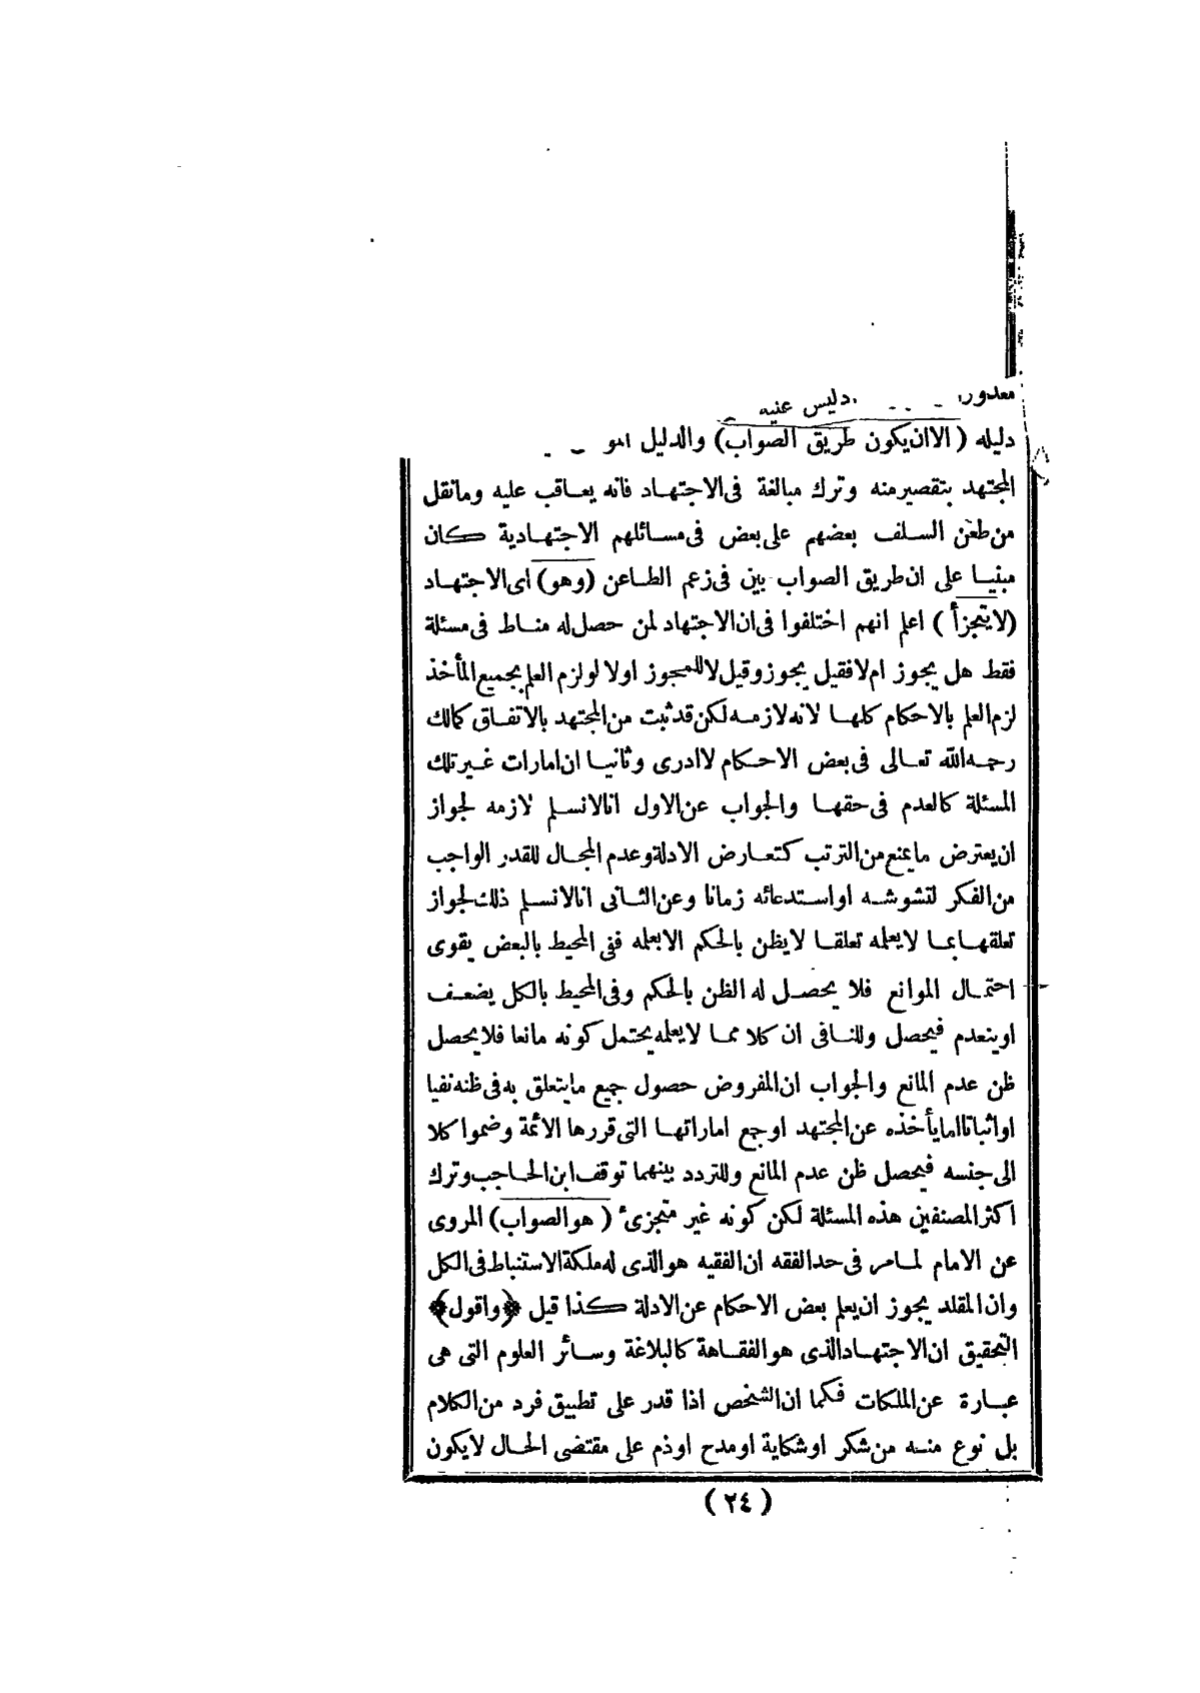 معذور
دليله (الا ان يكون طريق الصواب) والدليل
المجتهد بتقصير منه وترك مبالغة فى الاجتهاد فانه يعاقب عليه ومانقل
من طعن السلف بعضهم على بعض فى مسائلهم الاجتهادية كان
مبنيا على ان طريق الصواب بين فى زعم الطاعن (وهو) اى الاجتهاد
(لا يتجزأ) اعلم انهم اختلفوا فى ان الاجتهاد لمن حصل له مناط فى مسئلة
فقط هل يجوز ام لا فقيل يجوز وقيل لا للمجوز اولا لو لزم العلم بجميع المأخذ
لزم العلم بالاحكام كلها لانه لازمه لكن قد ثبت من المجتهد بالاتفاق كمالك
رحمه الله تعالى فى بعض الاحكام لا ادرى وثانيا ان امارات غير تلك
المسئلة كالعدم فى حقها والجواب عن الاول انا لا نسلم لازمه لجواز
ان يعترض ما يمنع من الترتب كتعارض الادلة وعدم المجال للقدر الواجب
من الفكر لتشوشه او استدعائه زمانا وعن الثانى انا لا نسلم ذلك لجواز
تعلقها بما لا يعلمه تعلقا لا يظن بالحكم الا بعلمه ففى المحيط بالبعض يقوى
احتمال الموانع فلا يحصل له الظن بالحكم وفى المحيط بالكل يضعف
او ينعدم فيحصل وللنافى ان كلا مما لا يعلمه يحتمل كونه مانعا فلا يحصل
ظن عدم المانع والجواب ان المفروض حصول جميع ما يتعلق به فى ظنه نفيا
او اثباتا اما يأخذه عن المجتهد او جمع اماراتها التى قررها الائمة وضموا كلا
الى جنسه فيحصل ظن عدم المانع وللتردد بينهما توقف ابن الحاجب وترك
اكثر المصنفين هذه المسئلة لكن كونه غير متجزئ (هو الصواب) المروى
عن الامام لما مر فى حد الفقه ان الفقيه هو الذى له ملكة الاستنباط فى الكل
وان المقلد يجوز ان يعلم بعض الاحكام عن الادلة كذا قيل ﴿واقول﴾
التحقيق ان الاجتهاد الذى هو الفقاهة كالبلاغة وسائر العلوم التى هى
عبارة عن الملكات فكما ان الشخص اذا قدر على تطبيق فرد من الكلام
بل نوع منه من شكر او شكاية او مدح او ذم على مقتضى الحال لا يكون
(٢٤)